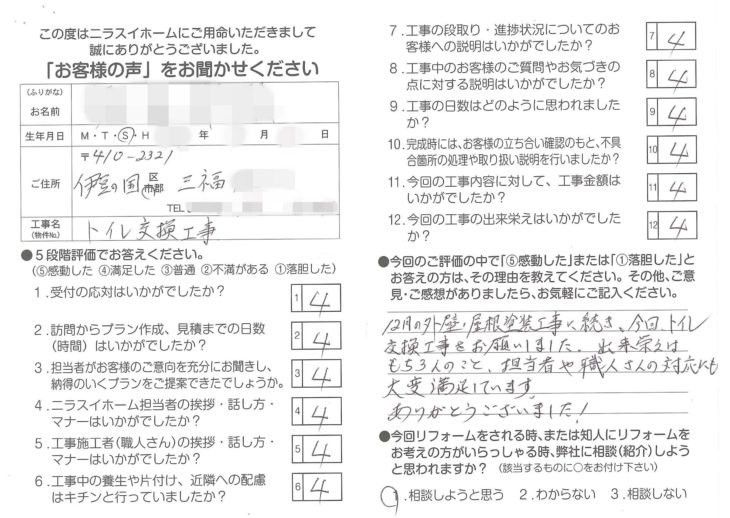 この度はニラスイホームにご用命いただきまして
誠にありがとうございました。
「お客様の声」をお聞かせください
(ふりがな)
お名前
生年月日 M・T・S・H 年 月 日
〒410-2321
ご住所 伊豆の国 区市郡 三福
TEL
工事名
(物件No.) トイレ交換工事
●5段階評価でお答えください。
(⑤感動した ④満足した ③普通 ②不満がある ①落胆した)
1.受付の応対はいかがでしたか?
1 4
2.訪問からプラン作成、見積までの日数
(時間)はいかがでしたか?
2 4
3.担当者がお客様のご意向を充分にお聞きし、
納得のいくプランをご提案できたでしょうか。
3 4
4.ニラスイホーム担当者の挨拶・話し方・
マナーはいかがでしたか?
4 4
5.工事施工者(職人さん)の挨拶・話し方・
マナーはいかがでしたか?
5 4
6.工事中の養生や片付け、近隣への配慮
はキチンと行っていましたか?
6 4
7.工事の段取り・進捗状況についてのお
客様への説明はいかがでしたか?
7 4
8.工事中のお客様のご質問やお気づきの
点に対する説明はいかがでしたか?
8 4
9.工事の日数はどのように思われました
か?
9 4
10.完成時には、お客様の立ち合い確認のもと、不具
合箇所の処理や取り扱い説明を行いましたか?
10 4
11.今回の工事内容に対して、工事金額は
いかがでしたか?
11 4
12.今回の工事の出来栄えはいかがでした
か?
12 4
●今回のご評価の中で「⑤感動した」または「①落胆した」と
お答えの方は、その理由を教えてください。その他、ご意
見・ご感想がありましたら、お気軽にご記入ください。
12月の外壁・屋根塗装工事に続き、今回、トイレ
交換工事をお願いしました。出来栄えは
もちろんのこと、担当者や職人さんの対応にも
大変満足しています。
ありがとうございました!
●今回リフォームをされる時、または知人にリフォームを
お考えの方がいらっしゃる時、弊社に相談(紹介)しよう
と思われますか?(該当するものに○をお付け下さい)
1.相談しようと思う 2.わからない 3.相談しない